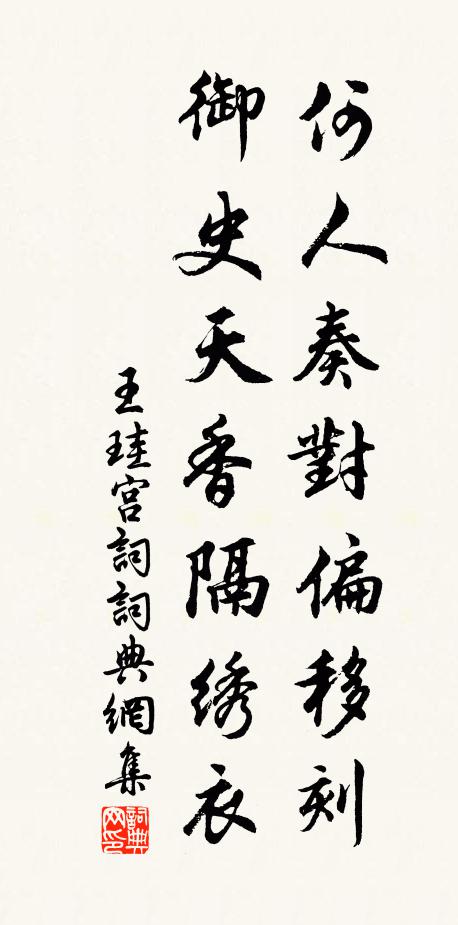 何人奏對偏移刻
御史天香隔绣衣
王珪宫詞詞典網集
詞典网印